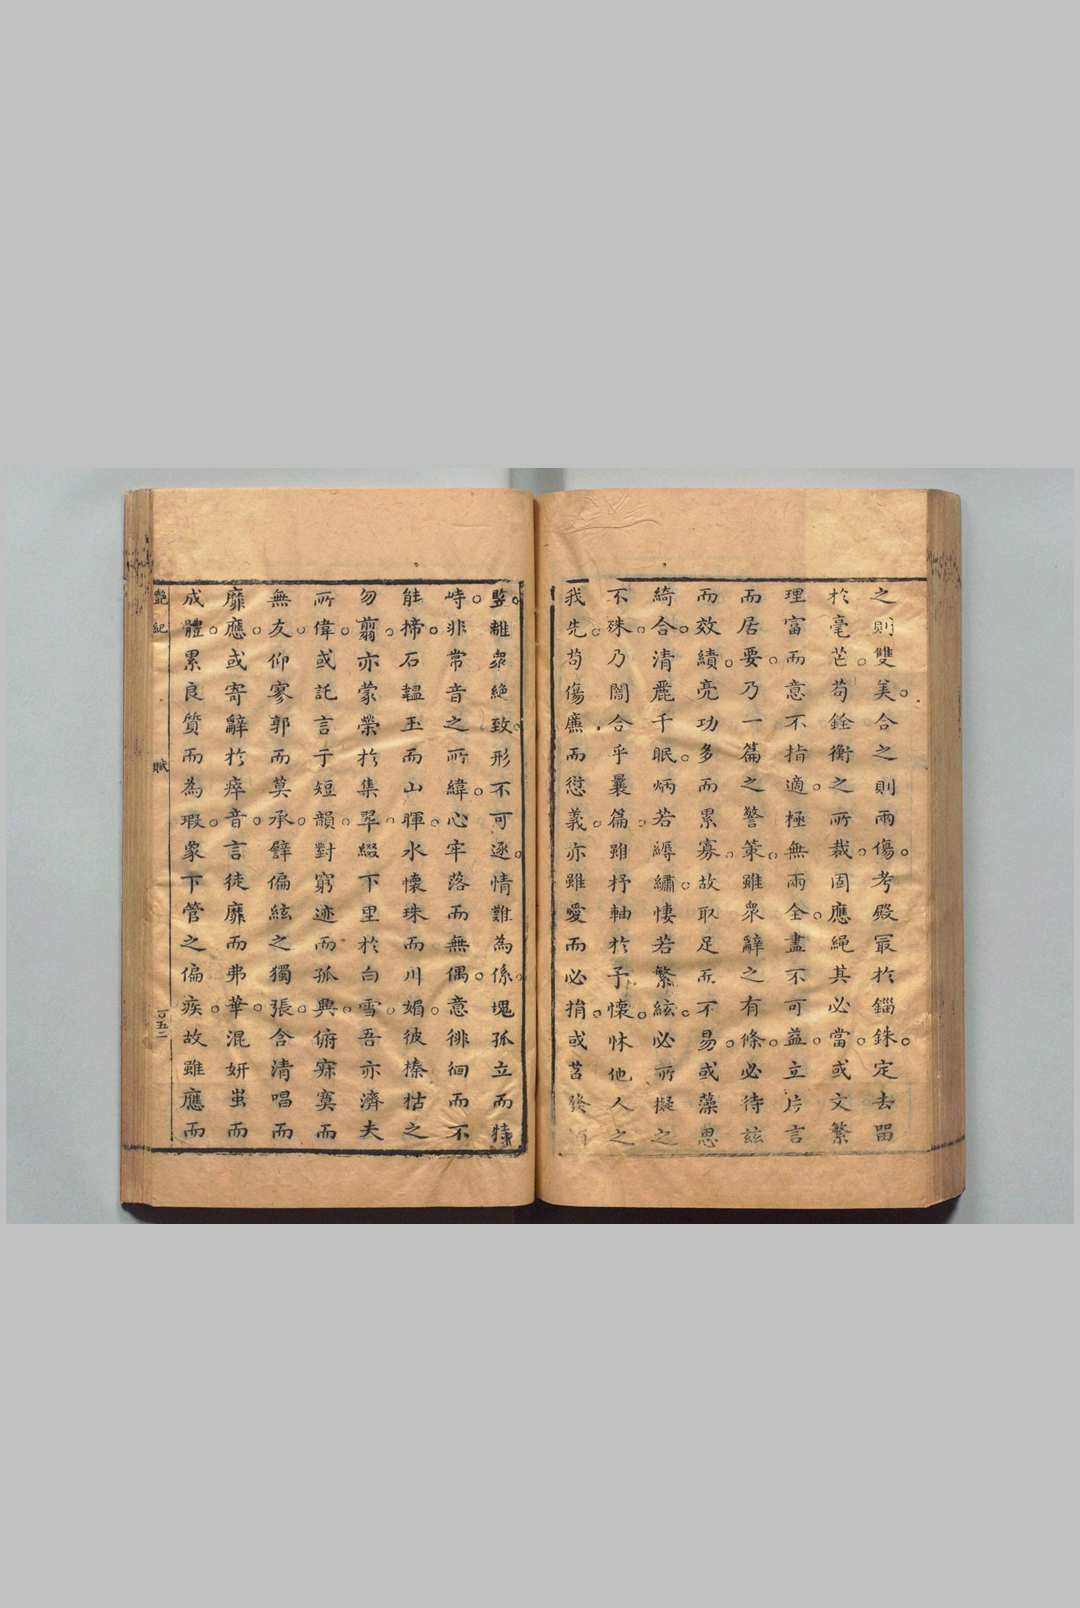 之則雙美。合之則兩傷。考殿冣於錙銖。定去留
於毫芒。苟銓衡之所裁。固應繩其必當。或文繁
理富而意不指適。極無兩全。盡不可益。立片言
而居要。乃一篇之警策。雖衆辭之有條。必待茲
而效績。亮功多而累寡。故取足而不易。或藻思
綺合。清麗千眠。炳若縟繡。悽若繁絃。必所擬之
不殊。乃闇合乎曩篇。雖杼軸於予懷。怵他人之
我先。苟傷廉而愆義。亦雖愛而必捐。或苕發穎
竪。離衆絶致。形不可逐。情難為係。塊孤立而特
峙。非常音之所緯。心牢落而無偶。意徘徊而不
能揥。石韞玉而山暉。水懷珠而川媚。彼榛楛之
勿翦。亦蒙榮於集翠。綴下里於白雪。吾亦濟夫
所偉。或託言于短韻。對窮迹而孤興。俯寂寞而
無友。仰寥郭而莫承。譬偏絃之獨張。含清唱而
靡應。或寄辭於瘁音。言徒靡而弗華。混妍蚩而
成體。累良質而為瑕。象下管之偏疾。故雖應而
艶紀 賦 五二